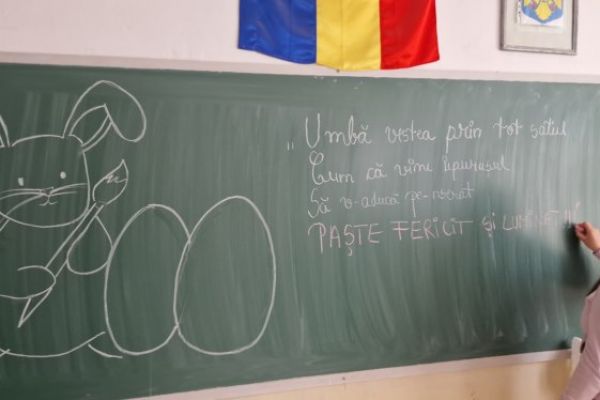 „Umbă vestea prin tot satul
Cum că vine iepurașul
Să v-aducă pe-nserat
PAȘTE FERICIT ȘI LUMINAT!"